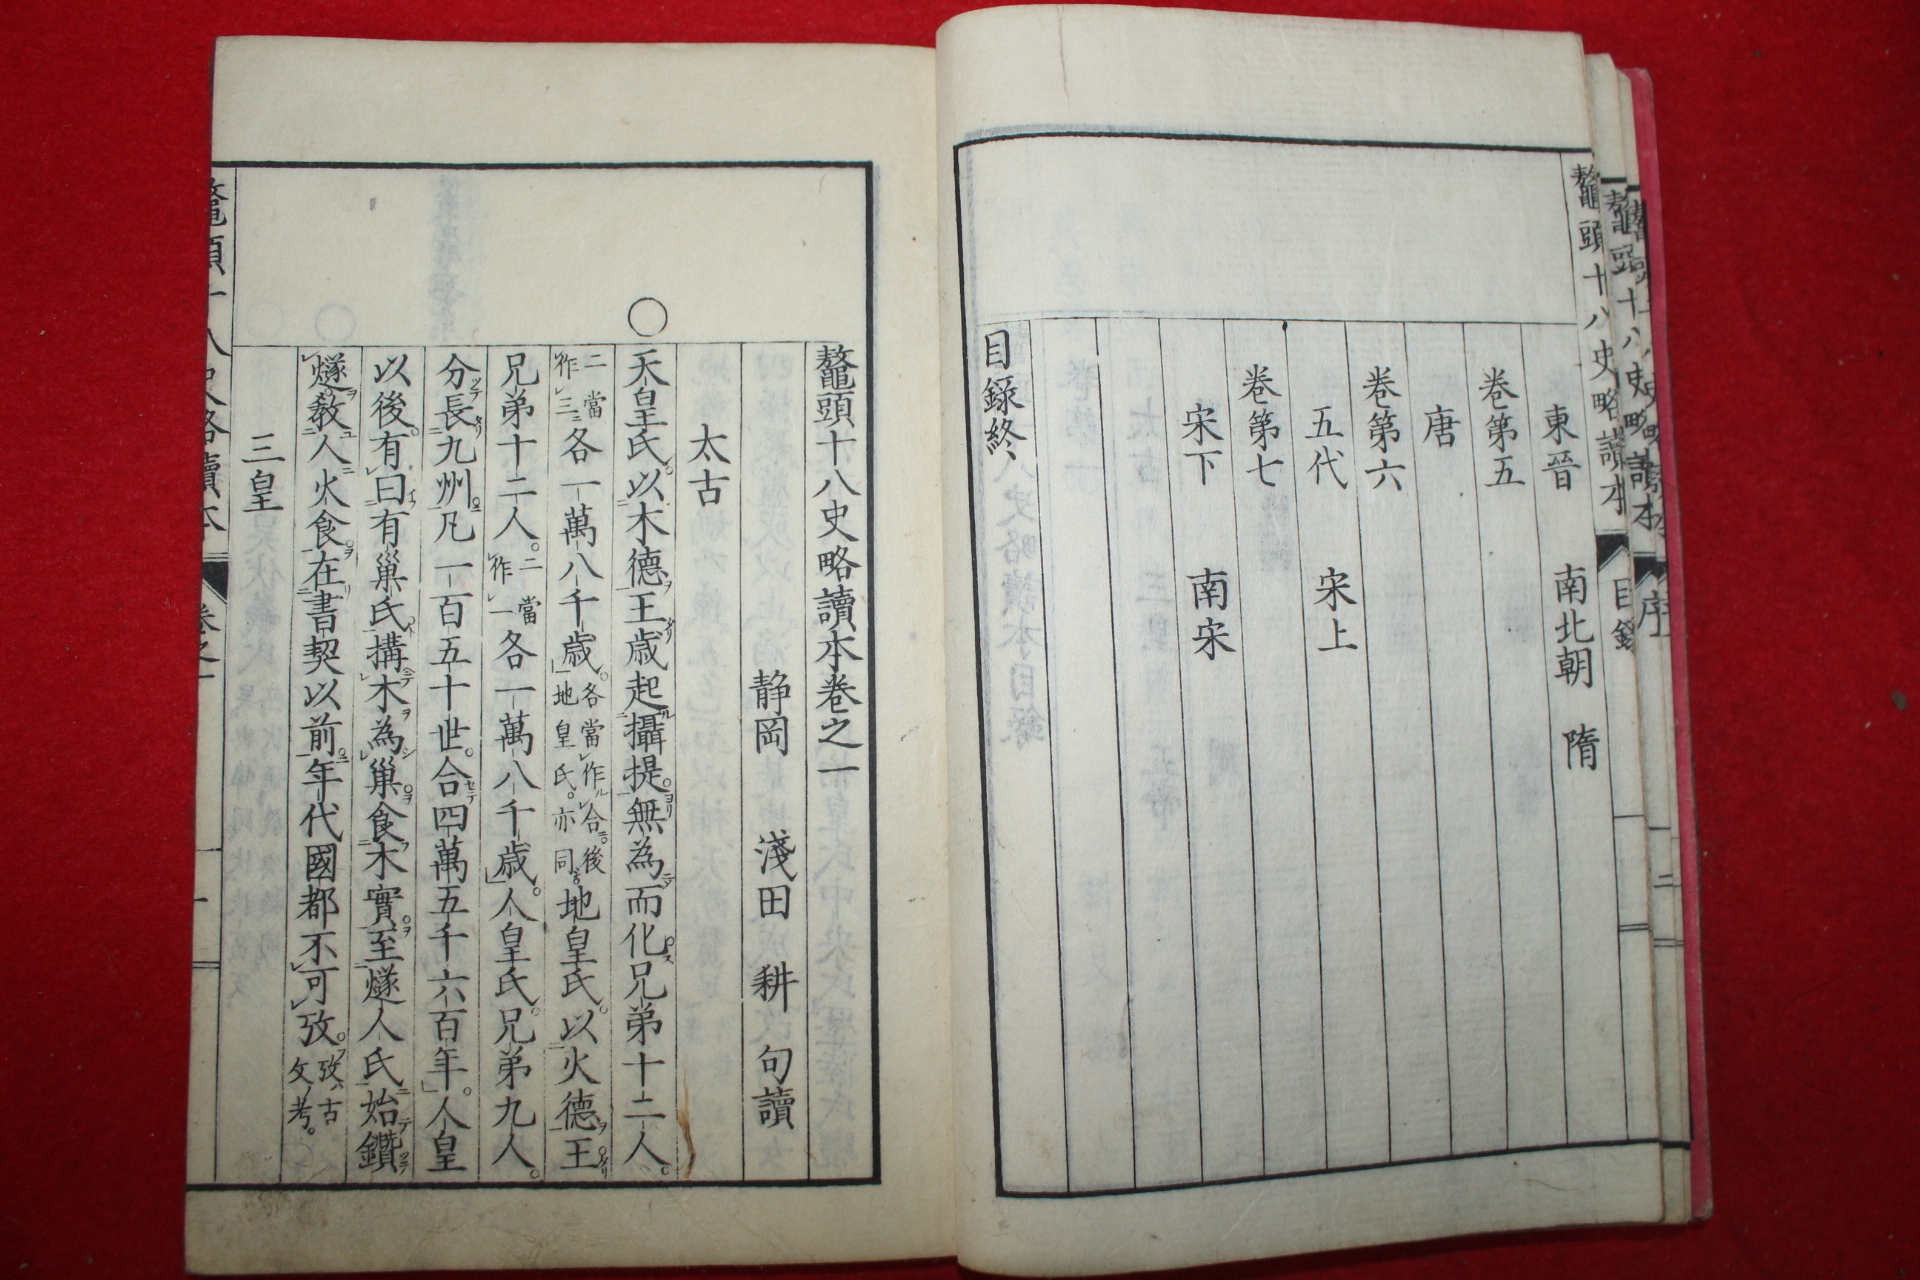 鼇頭十八史略讀本
目錄
二
東晉 南北朝 隋
卷第五
唐
卷第六
五代 宋上
卷第七
宋下 南宋
目錄終
鼇頭十八史略讀本卷之一
靜岡 淺田 耕 句讀
太古
○
天皇氏。以木德王。歲起攝提。無為而化。兄弟十二人。
二當作三
各一萬八千歲。
各當作合。後地皇氏。亦同。
地皇氏。以火德王。
兄弟十二人。
二當作一
各一萬八千歲。人皇氏。兄弟九人。
分長九州。凡一百五十世。合四萬五千六百年。人皇
以後。有曰有巢氏。搆木為巢。食木實。至燧人氏。始鑽
燧。敎人火食。在書契以前。年代國都不可攷。
攷、古文ノ考。
三皇
鼇頭十八史略讀本
卷之一
一